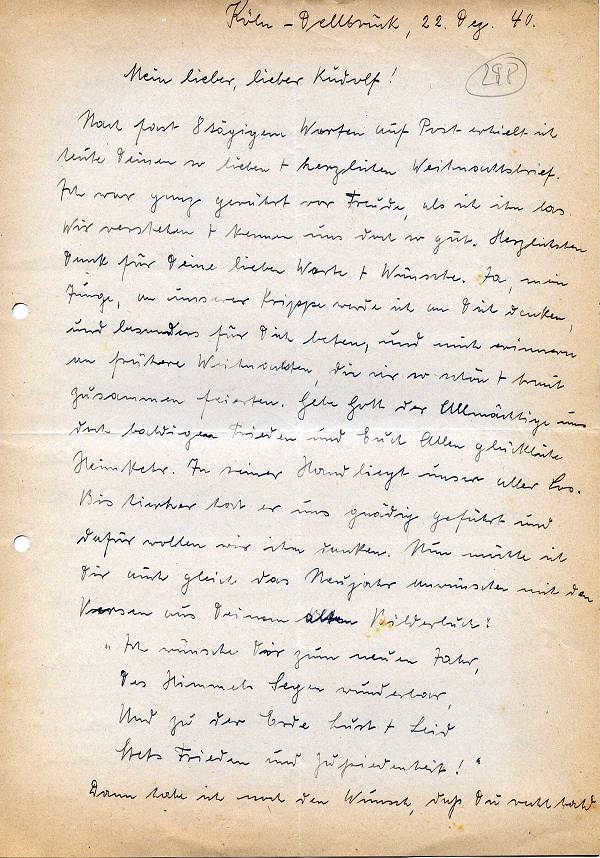 Köln-Dellbrück, 22. Dez. 40.
298
Mein lieber, lieber Rudolf!
Nach fast 8tägigem Warten auf Post erhielt ich
heute Deinen so lieben + herzlichen Weihnachtsbrief.
Ich war ganz gerührt vor Freude, als ich ihn las.
Wir verstehen + kennen uns doch so gut. Herzlichsten
Dank für Deine lieben Worte + Wünsche. Ja, mein
Junge, an unserer Krippe werde ich an Dich denken,
und besonders für Dich beten, und mich erinnern
an frühere Weihnachten, die wir so schön + traut
zusammen feierten. Gebe Gott der Allmächtige uns
doch baldigen Frieden und Euch Allen glückliche
Heimkehr. In seiner Hand liegt unser aller Los.
Bis hierher hat er uns gnädig geführt und
dafür wollen wir ihm danken. Nun möchte ich
Dir auch gleich das Neujahr anwünschen mit den
Versen aus Deinem alten Bilderbuch:
"Ich wünsche Dir zum neuen Jahr,
Des Himmels Segen wunderbar,
Und zu der Erde Lust + Leid
Stets Frieden und Zufriedenheit!"
Dann habe ich noch den Wunsch, daß Du recht bald